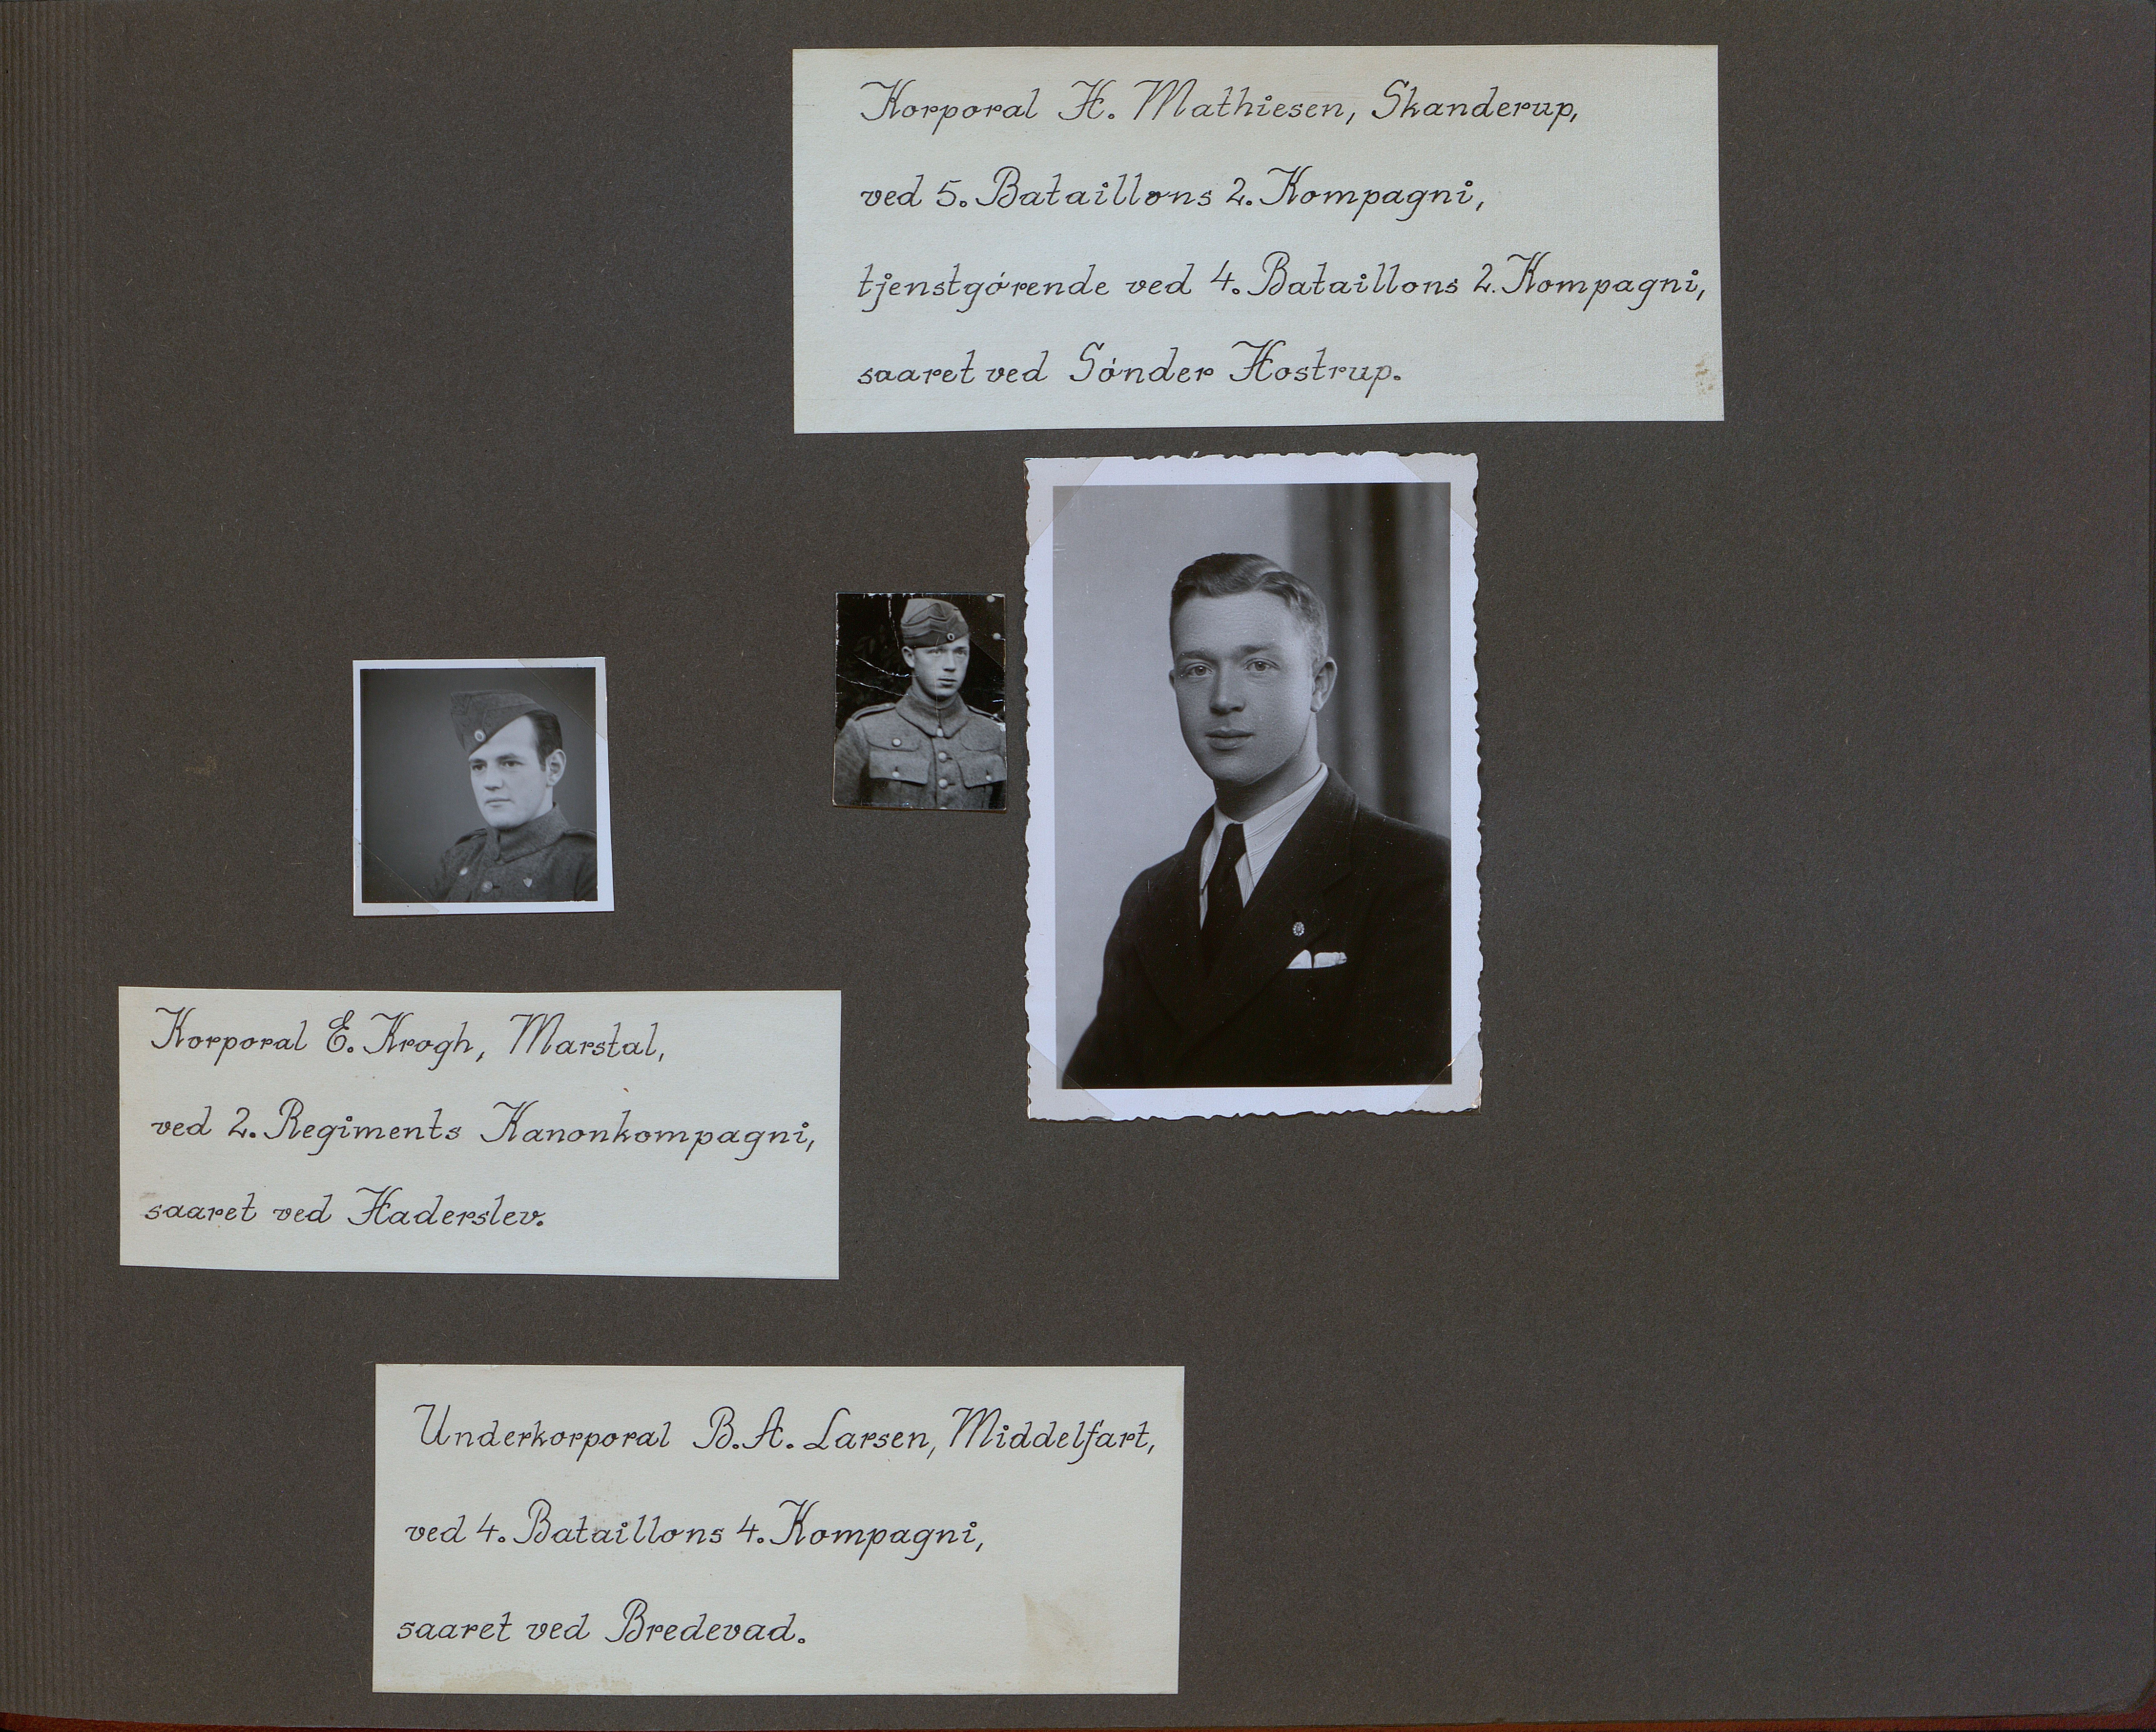 Korporal H. Mathiesen, Skanderup,
ved 5. Bataillons 2. Kompagni,
tjenstgørende ved 4. Bataillons 2. Kompagni,
saaret ved Sønder Hostrup.
Korporal E. Krogh, Marstal,
ved 2. Regiments Kanonkompagni,
saaret ved Haderslev.
Underkorporal B. A. Larsen, Middelfart,
ved 4. Bataillons 4. Kompagni,
saaret ved Bredevad.